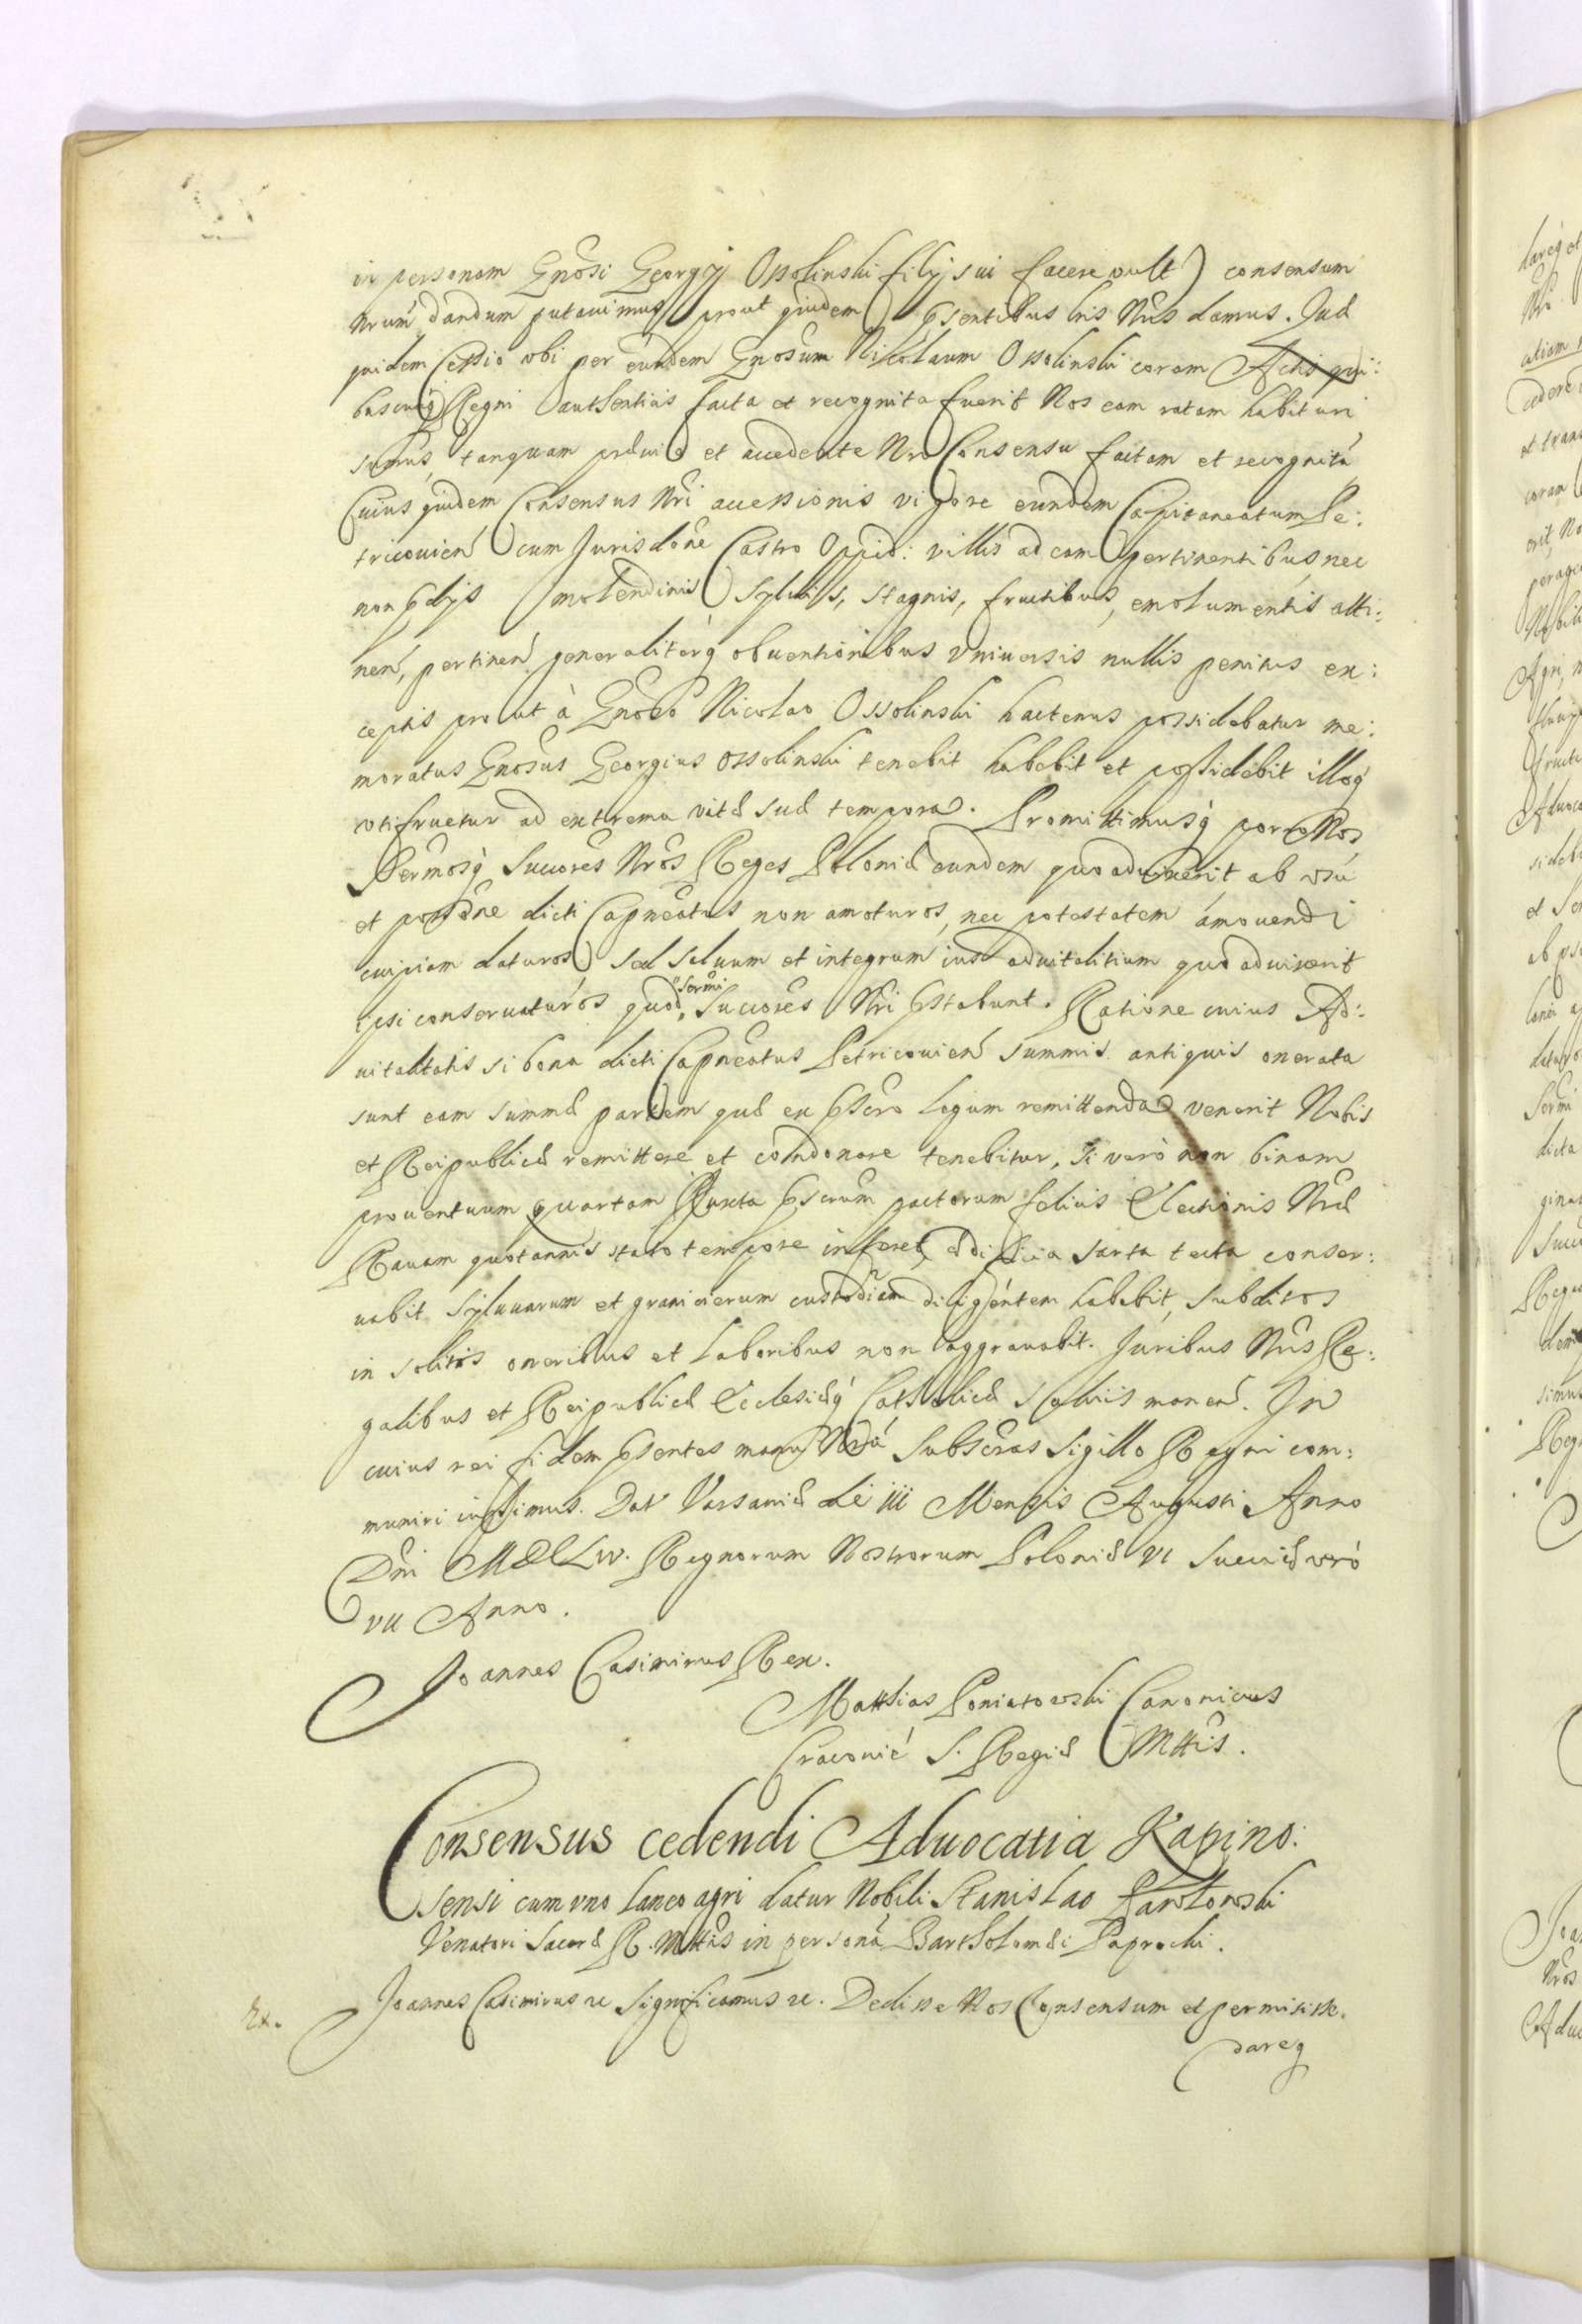 in personam Gnosi Georgij Ossolinski filij sui facere vult) consensum
Nrum dandum putauimus prout quidem psentibus lris Nris damus. Quæ
quidem Cessio ubi per eundem Gnosum Nicolaum Ossolinski coram Actis qui:
buscunq Regni authenticis facta et recognita fuerit Nos eam ratam habituri
sumus, tanquam præuio et accedente Nro Consensu factam et recognitá
Cuius quidem Consensus Nri accessionis vigore eundem Capitaneatum Pe:
tricouien cum Jurisdone Castro Oppid: villis ad eam pertinentibus, nec
non pdijs molendinis Syluis, stagnis, fructibus, emolumentis atti:
nen, pertinen generaliterq obuentionibus vniuersis nullis penitus ex:
ceptis prout à Gnoso Nicolao Ossolinski hactenus possidebatur me:
moratus Gnosus Georgius Ossolinski tenebit habebit et possidebit illoq
vtifruetur ad extrema vitæ suæ tempora. Promittimusq pro Nos
Sermosq Succores Nros Reges Poloniæ eundem quoaduixerit ab vsu
et possone dicti Capneatus non amoturos, nec potestatem amouendi
cuipiam daturos sed saluum et integrum ius aduitalitium quo aduixerit
ipsi conseruaturos quod Sermi Succores Nri pstabunt. Ratione cuius Ad:
uitalitatis si bona dicti Capneatus Petricouien summis antiquis onerata
sunt eam summæ partem quæ ex pscro legum remittenda venerit Nobis
et Reipublicæ remittere et condonare tenebitur, Si verò non binam
prouentuum quartam Juxta pscrum pactorum felicis Electionis Nræ
Rauam quotannis stato tempore inferet, ædificia sarta tecta conser:
uabit Syluarum et granicierum custodiam diligentem habebit, subditos
in solitis oneribus et laboribus non aggrauabit. Juribus Nris Re:
galibus et Reipublicæ Ecclesiæq Catholicæ saluis manen. In
cuius rei fidem psentes manu Nrá subscras Sigillo Regni com:
muniri iussimus. Dat Varsauiæ die iii Mensis Augusti Anno
Dni MDCLIV. Regnorum Nostrorum Poloniæ VI Sueciæ vrò
VII Anno.
Joannes Casimirus Rex.
Matthias Poniatowski Canonicus
Cracouié S. Regiæ Mttis.
Consensus cedendi Aduocatia Kapino:
sensi cum vno laneo agri datur Nobili Stanislao Pawlowski
Venatori Sacræ R. Mttis in personá Bartholomæi Paprocki.
Ex. Joannes Casimirus rc Significamus rc. Dedisse Nos Consensum et permisisse.
dareq